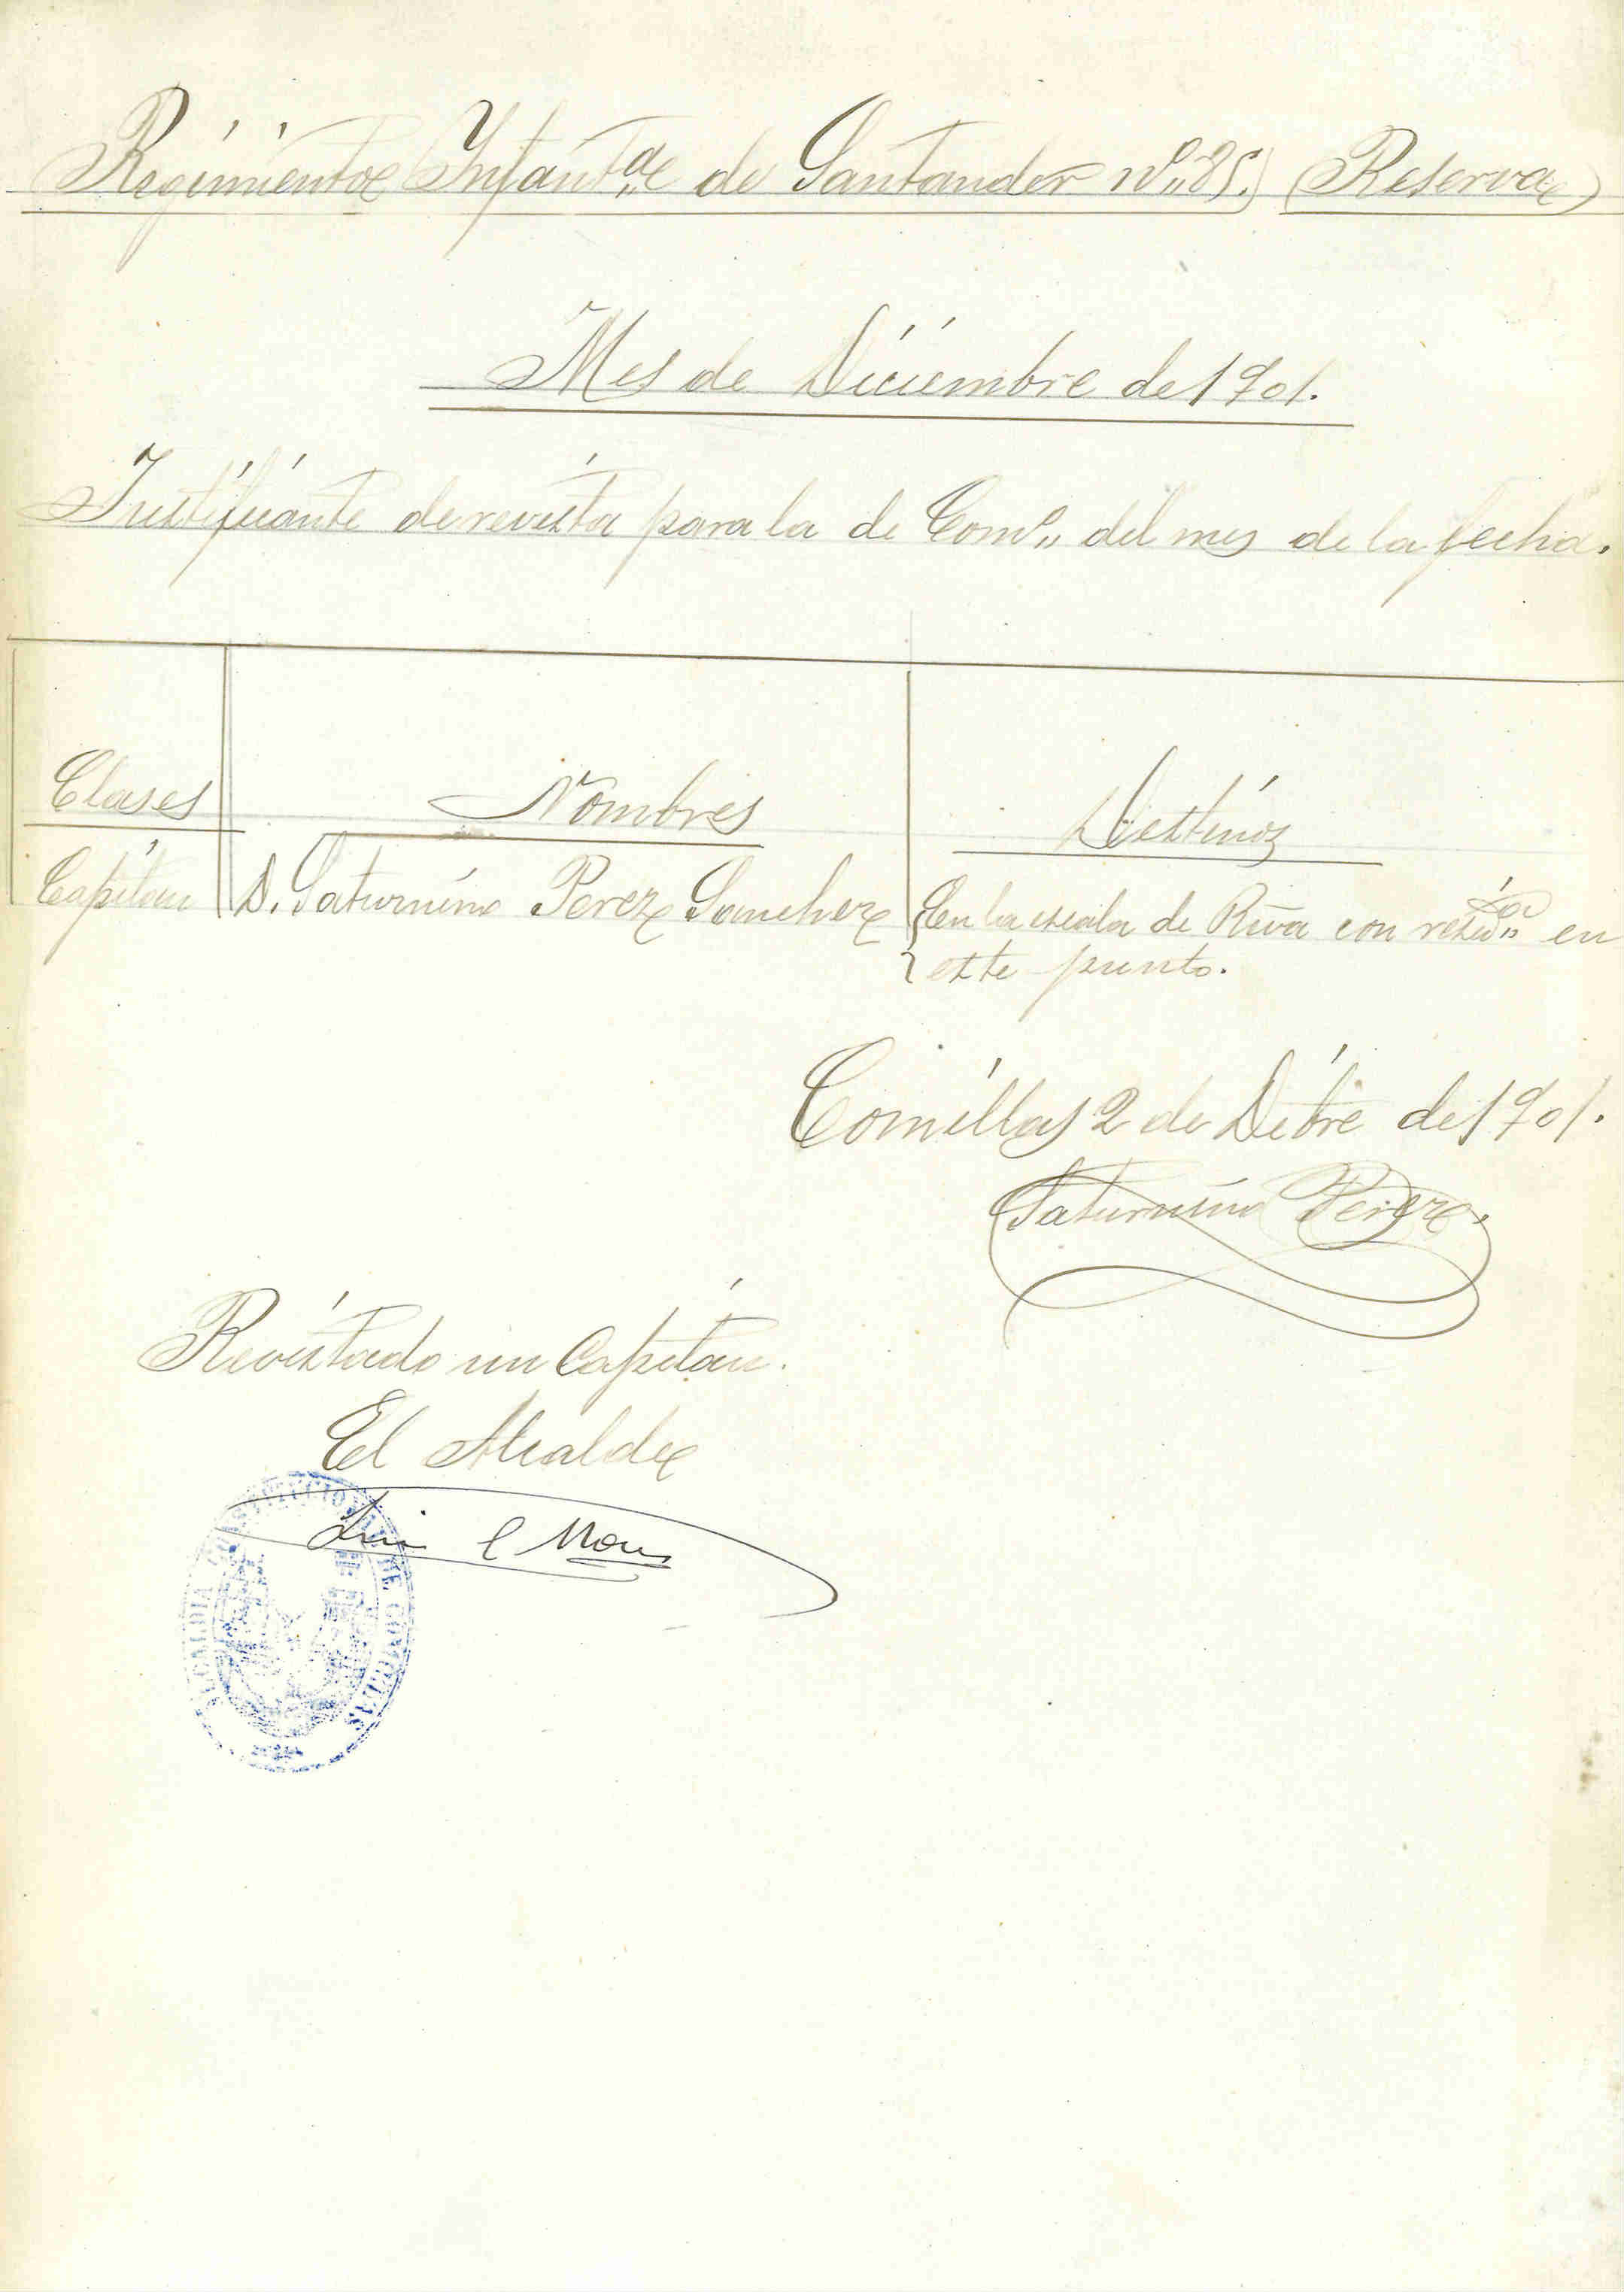 Regimiento Infantª de Santander nº 85. (Reserva)
Mes de Diciembre de 1901.
Justificante de revista para la de Comº del mes de la fecha.
Clases Nombres Destinos
Capitan D. Saturnino Perez Sanchez En la escala de Rva con resida en
este punto.
Comillas 2 de Dcbre de 1901.
Saturnino Perez
Revistado un Capitan.
El Alcalde
ALCALDIA CONSTITUCIONAL DE COMILLAS